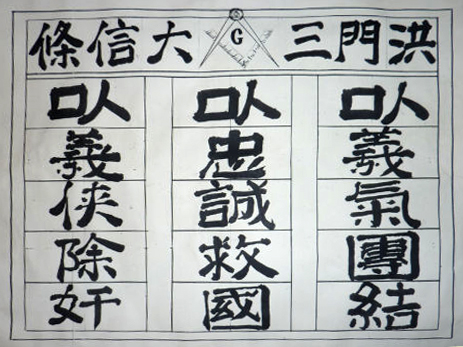 洪門三G大信條
以義氣團結
以忠誠救國
以義俠除奸